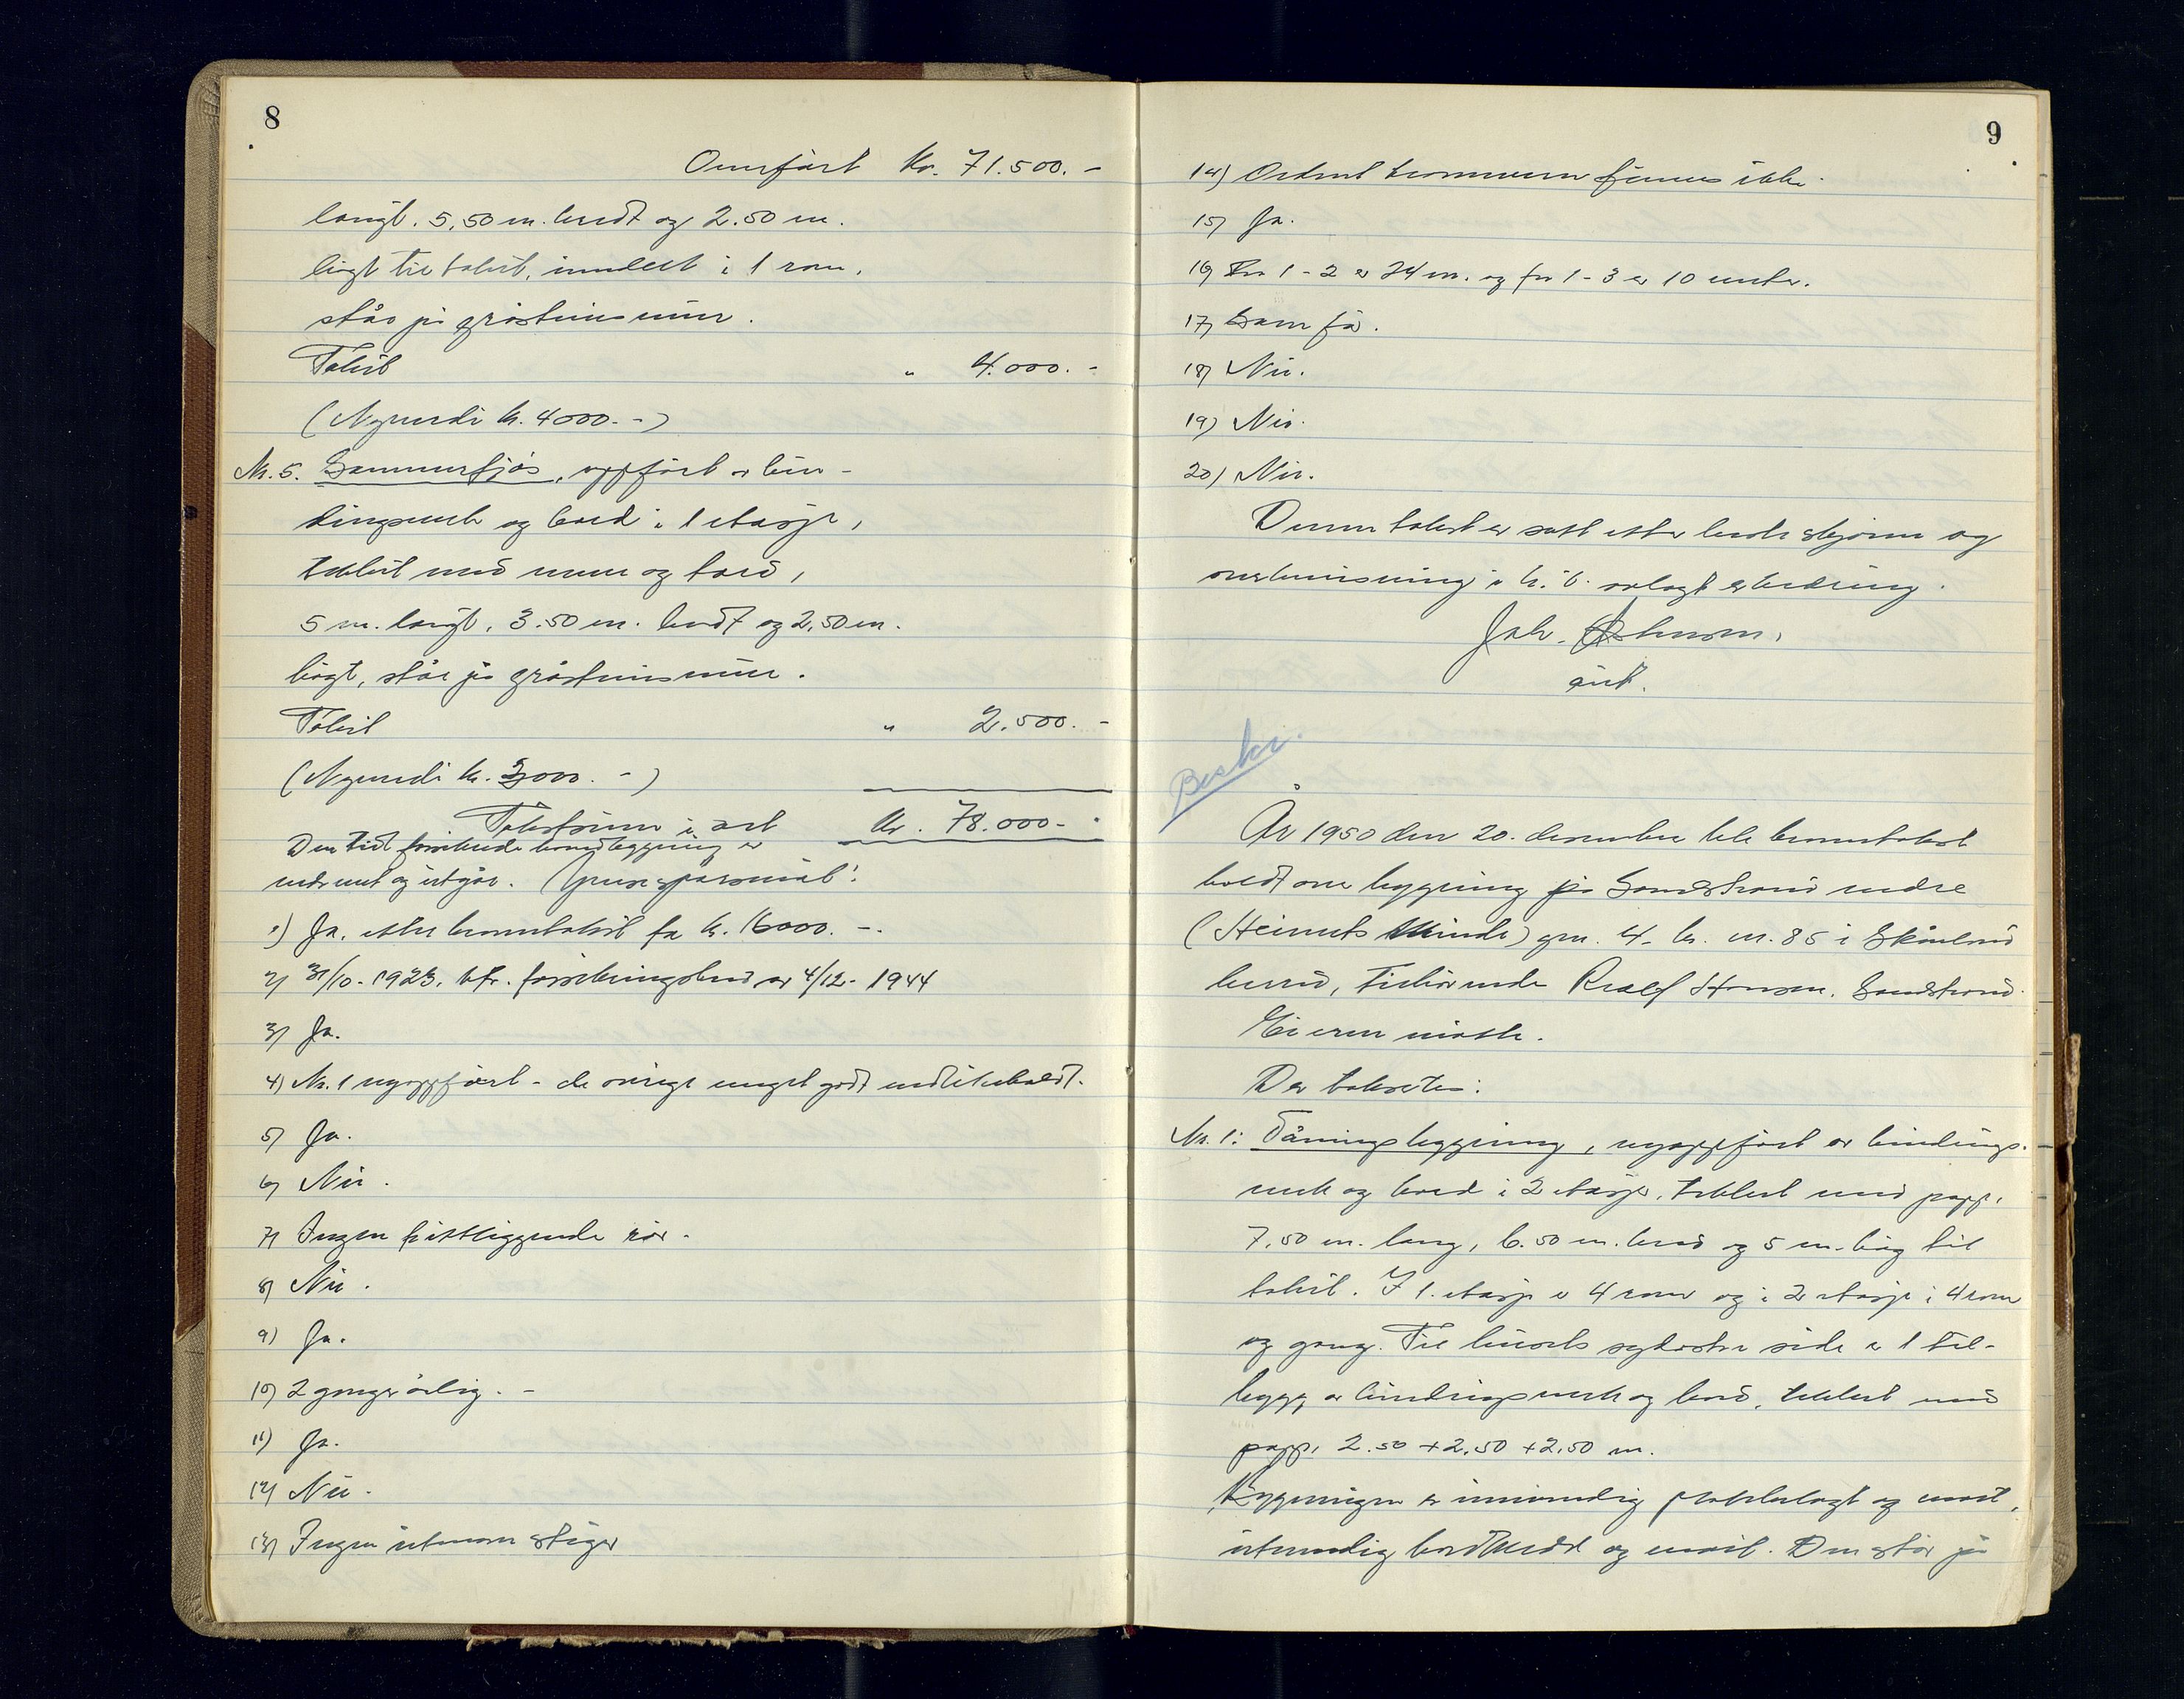 8
Overført Kr. 71.500.-
langt. 5,50 m. bredt og 2.50 m.
høgt til takut, inndelt i 1 rom,
står på gråsteinsmur.
Takst " 4.000.-
(Nyverdi kr. 4000.-)
Nr. 5. Sommerfjøs, oppført av bin-
dingsverk og bord i 1 etasje,
tekket med never og torv,
5 m. langt, 3.50 m. bredt og 2,50 m.
høgt, står på gråsteinsmur.
Takst " 2.500.-
(Nyverdi kr. 3000.-)
Takstsum i alt Kr. 78.000-
Den tidl. forsikrede hovedbygning er
nedrevet og utgår.
1) Ja, etter branntakst fra kr. 16000.-.
2) 31/10-1923, bfr. forsikringsbrev av 4/12-1944
3) Ja.
4) Nr. 1 nyoppført - de øvrige meget godt vedlikeholdt.
5) Ja.
6) Nei.
7) Ingen frittliggende rør.
8) Nei.
9) Ja.
10) 2 ganger årlig.-
11) Ja.
12) Nei.
13) Ingen utenom stiger
9
14) Ordnet brannvern finnes ikke.
15) Ja.
16) Fra 1-2 er 24 m. og fra 1-3 er 10 meter.
17) Som før.
18) Nei.
19) Nei.
20) Nei.
Denne takst er satt etter beste skjønn og
overbevisning i h. t. avlagt erklæring.
Joh. Johnsen,
Beskr.
År 1950 den 20. desember ble branntakst
holdt over bygning på Sandstrand nedre
(Heimets Minde) gnr. 4. br. nr. 85 i Skånland
herred, tilhørende Realf Hansen, Sandstrand.
Eieren møtte.
Der takseres:
Nr. 1: Våningsbygning, nyoppført av bindings-
verk og bord i 2 etasjer, tekket med papp,
7,50 m. lang, 6.50 m. bred og 5 m. høg til
takut. I 1. etasje er 4 rom og i 2 etasje i 4 rom
og gang. Til husets sydøstre side er 1 til-
bygg av bindingsverk og bord, tekket med
papp, 2.50 + 2,50 + 2,50 m.
Bygningen er innvendig panelt og malt,
utvendig bordkledd og malt. Den står på